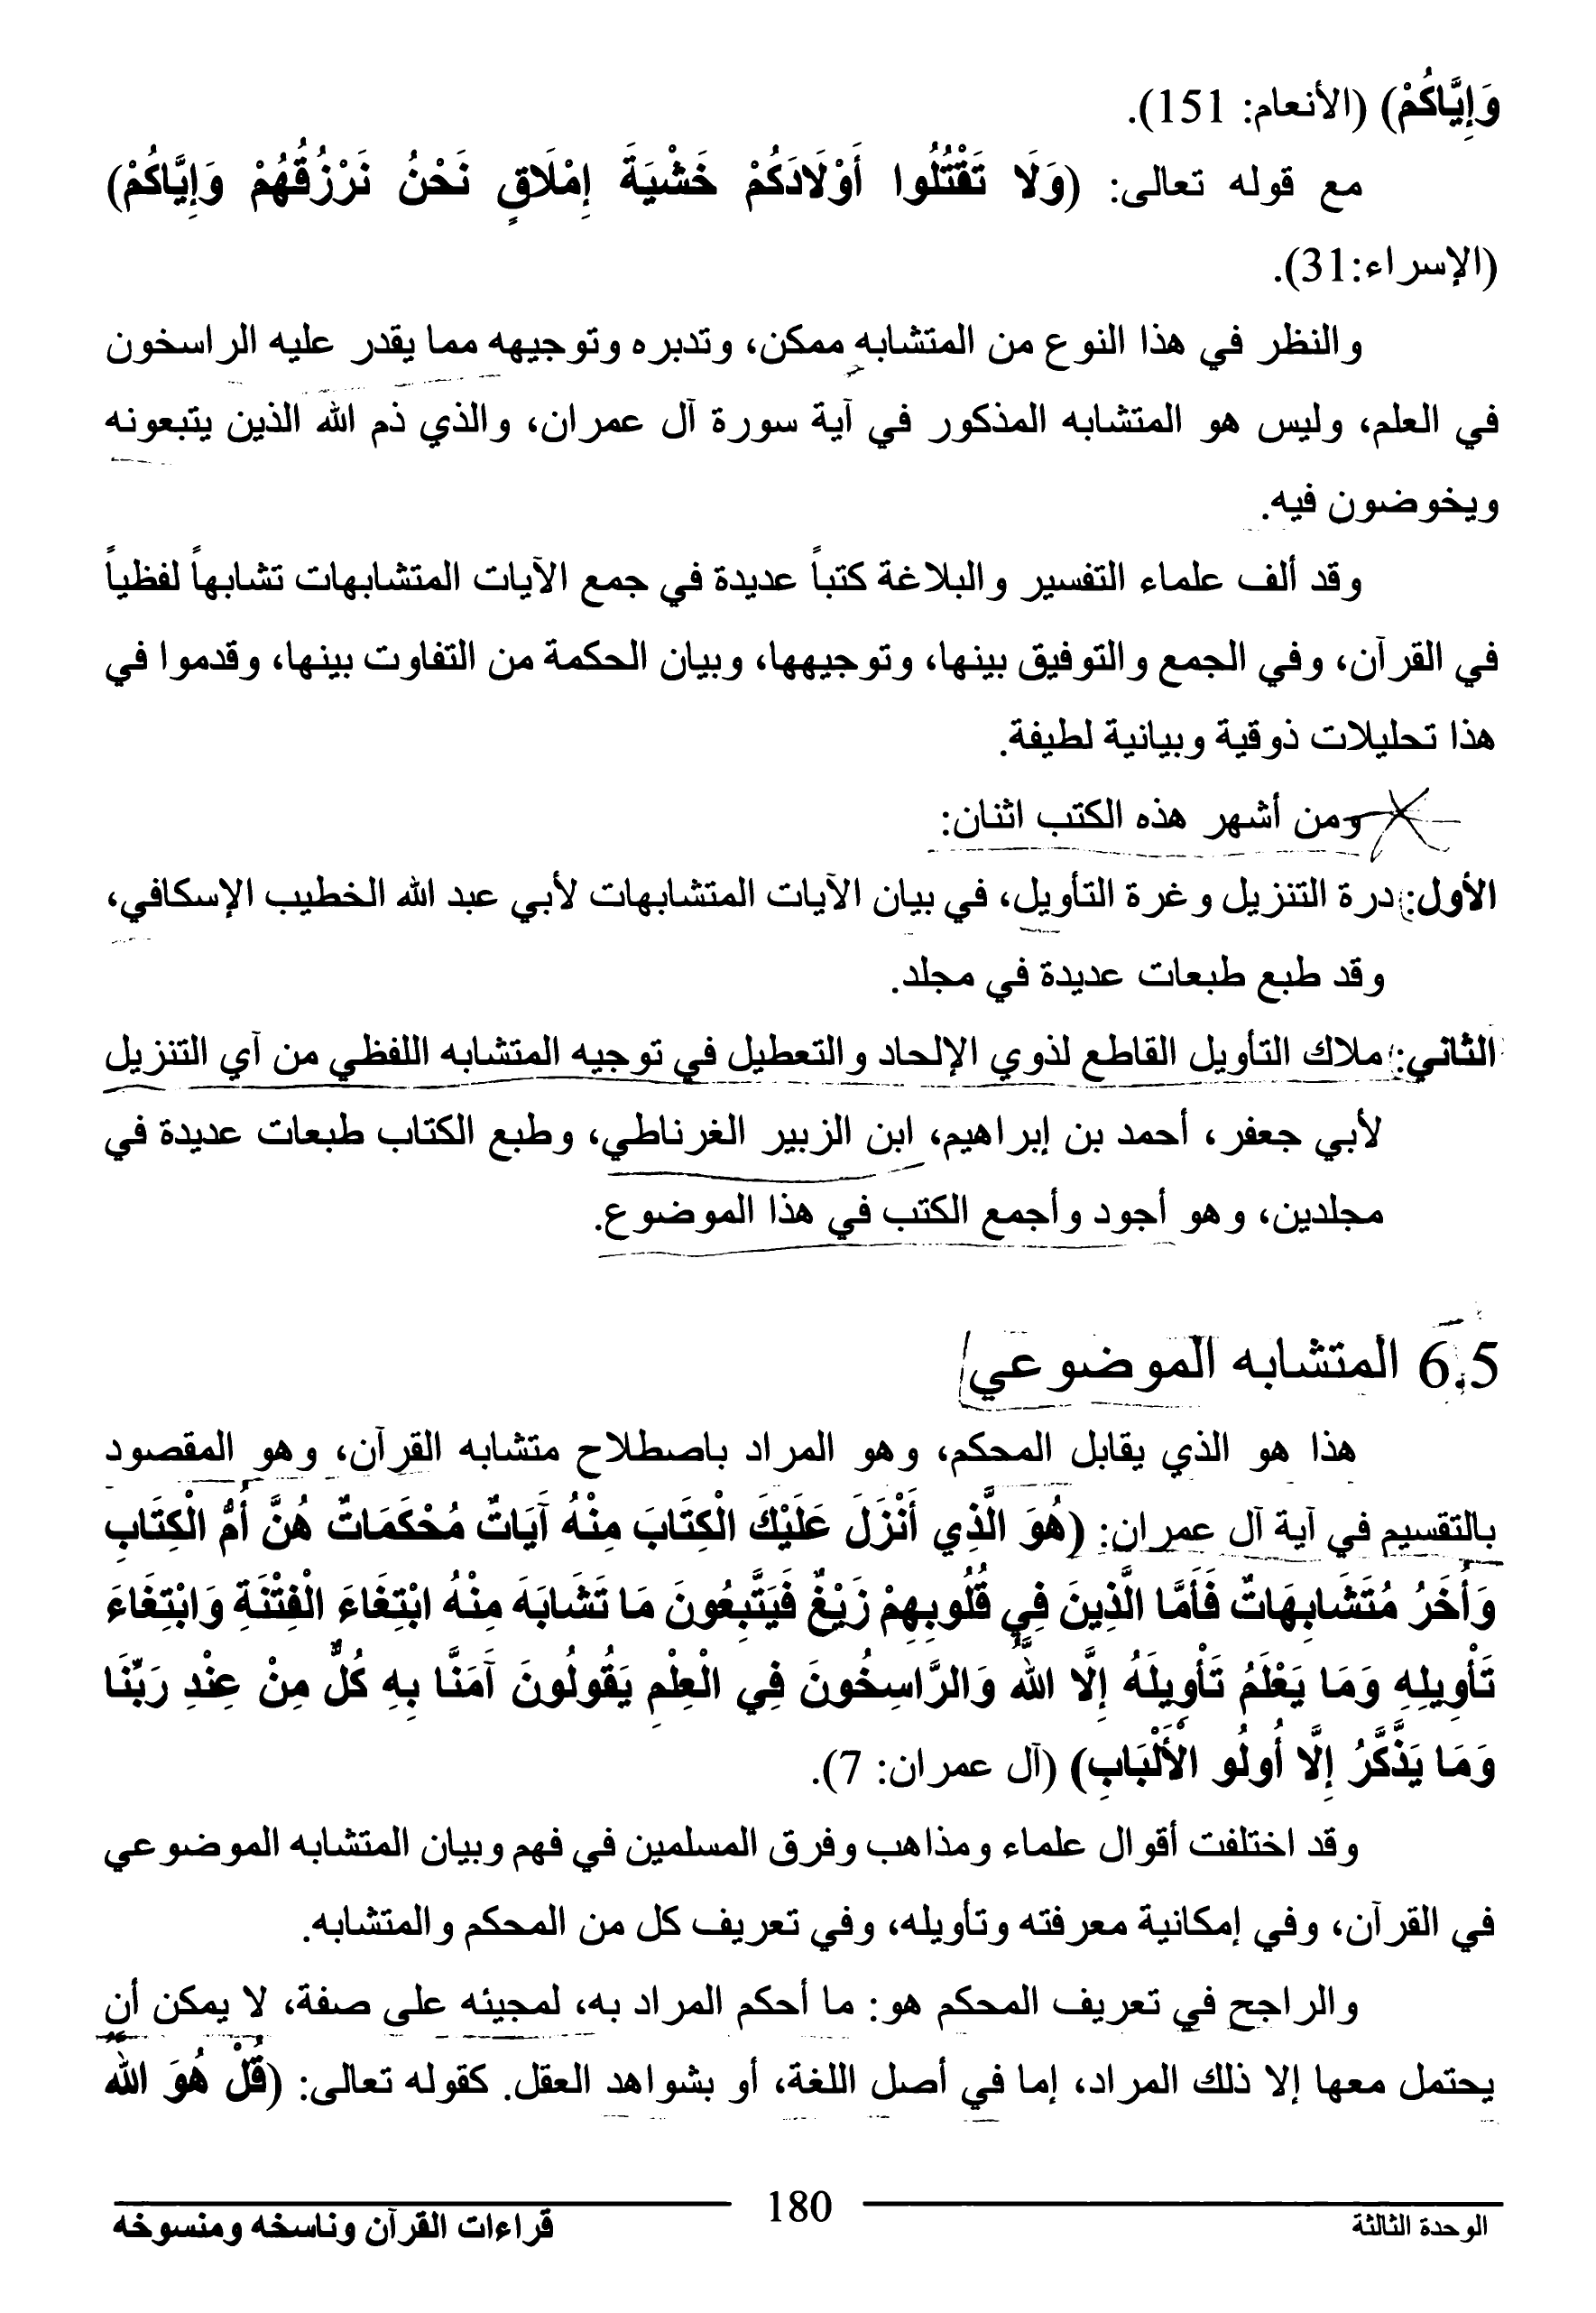 وَإِيَّاكُمْ) (الأنعام: 151).
مع قوله تعالى: (وَلَا تَقْتُلُوا أَوْلَادَكُمْ خَشْيَةَ إِمْلَاقٍ نَحْنُ نَرْزُقُهُمْ وَإِيَّاكُمْ)
(الإسراء:31).
والنظر في هذا النوع من المتشابه ممكن، وتدبره وتوجيهه مما يقدر عليه الراسخون
في العلم، وليس هو المتشابه المذكور في آية سورة آل عمران، والذي ذم الله الذين يتبعونه
ويخوضون فيه.
وقد ألف علماء التفسير والبلاغة كتباً عديدة في جمع الآيات المتشابهات تشابهاً لفظياً
في القرآن، وفي الجمع والتوفيق بينها، وتوجيهها، وبيان الحكمة من التفاوت بينها، وقدموا في
هذا تحليلات ذوقية وبيانية لطيفة.
ومن أشهر هذه الكتب اثنان:
الأول: درة التنزيل وغرة التأويل، في بيان الآيات المتشابهات لأبي عبد الله الخطيب الإسكافي،
وقد طبع طبعات عديدة في مجلد.
الثاني: ملاك التأويل القاطع لذوي الإلحاد والتعطيل في توجيه المتشابه اللفظي من آي التنزيل
لأبي جعفر، أحمد بن إبراهيم، ابن الزبير الغرناطي، وطبع الكتاب طبعات عديدة في
مجلدين، وهو أجود وأجمع الكتب في هذا الموضوع.
6.5 المتشابه الموضوعي
هذا هو الذي يقابل المحكم، وهو المراد باصطلاح متشابه القرآن، وهو المقصود
بالتقسيم في آية آل عمران: (هُوَ الَّذِي أَنْزَلَ عَلَيْكَ الْكِتَابَ مِنْهُ آَيَاتٌ مُحْكَمَاتٌ هُنَّ أُمُّ الْكِتَابِ
وَأُخَرُ مُتَشَابِهَاتٌ فَأَمَّا الَّذِينَ فِي قُلُوبِهِمْ زَيْغٌ فَيَتَّبِعُونَ مَا تَشَابَهَ مِنْهُ ابْتِغَاءَ الْفِتْنَةِ وَابْتِغَاءَ
تَأْوِيلِهِ وَمَا يَعْلَمُ تَأْوِيلَهُ إِلَّا اللَّهُ وَالرَّاسِخُونَ فِي الْعِلْمِ يَقُولُونَ آَمَنَّا بِهِ كُلٌّ مِنْ عِنْدِ رَبِّنَا
وَمَا يَذَّكَّرُ إِلَّا أُولُو الْأَلْبَابِ) (آل عمران: 7).
وقد اختلفت أقوال علماء ومذاهب وفرق المسلمين في فهم وبيان المتشابه الموضوعي
في القرآن، وفي إمكانية معرفته وتأويله، وفي تعريف كل من المحكم والمتشابه.
والراجح في تعريف المحكم هو: ما أحكم المراد به، لمجيئه على صفة، لا يمكن أن
يحتمل معها إلا ذلك المراد، إما في أصل اللغة، أو بشواهد العقل. كقوله تعالى: (قُلْ هُوَ اللَّهُ
الوحدة الثالثة 180 قراءات القرآن وناسخه ومنسوخه